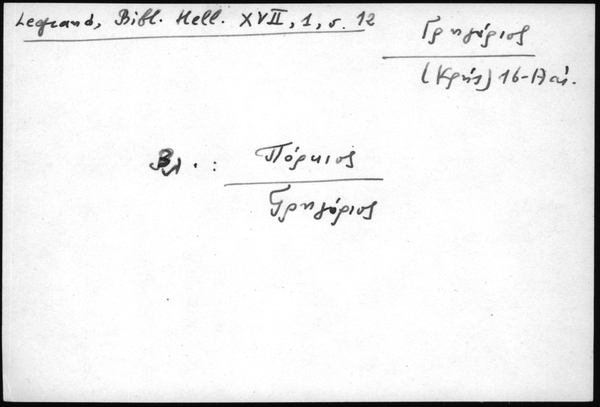 Legrand, Bibl. Hell. XVII, 1, σ. 12
Γρηγόριος
(Κρής) 16-17 αἰ.
Βλ. :
Πόρκιος
Γρηγόριος